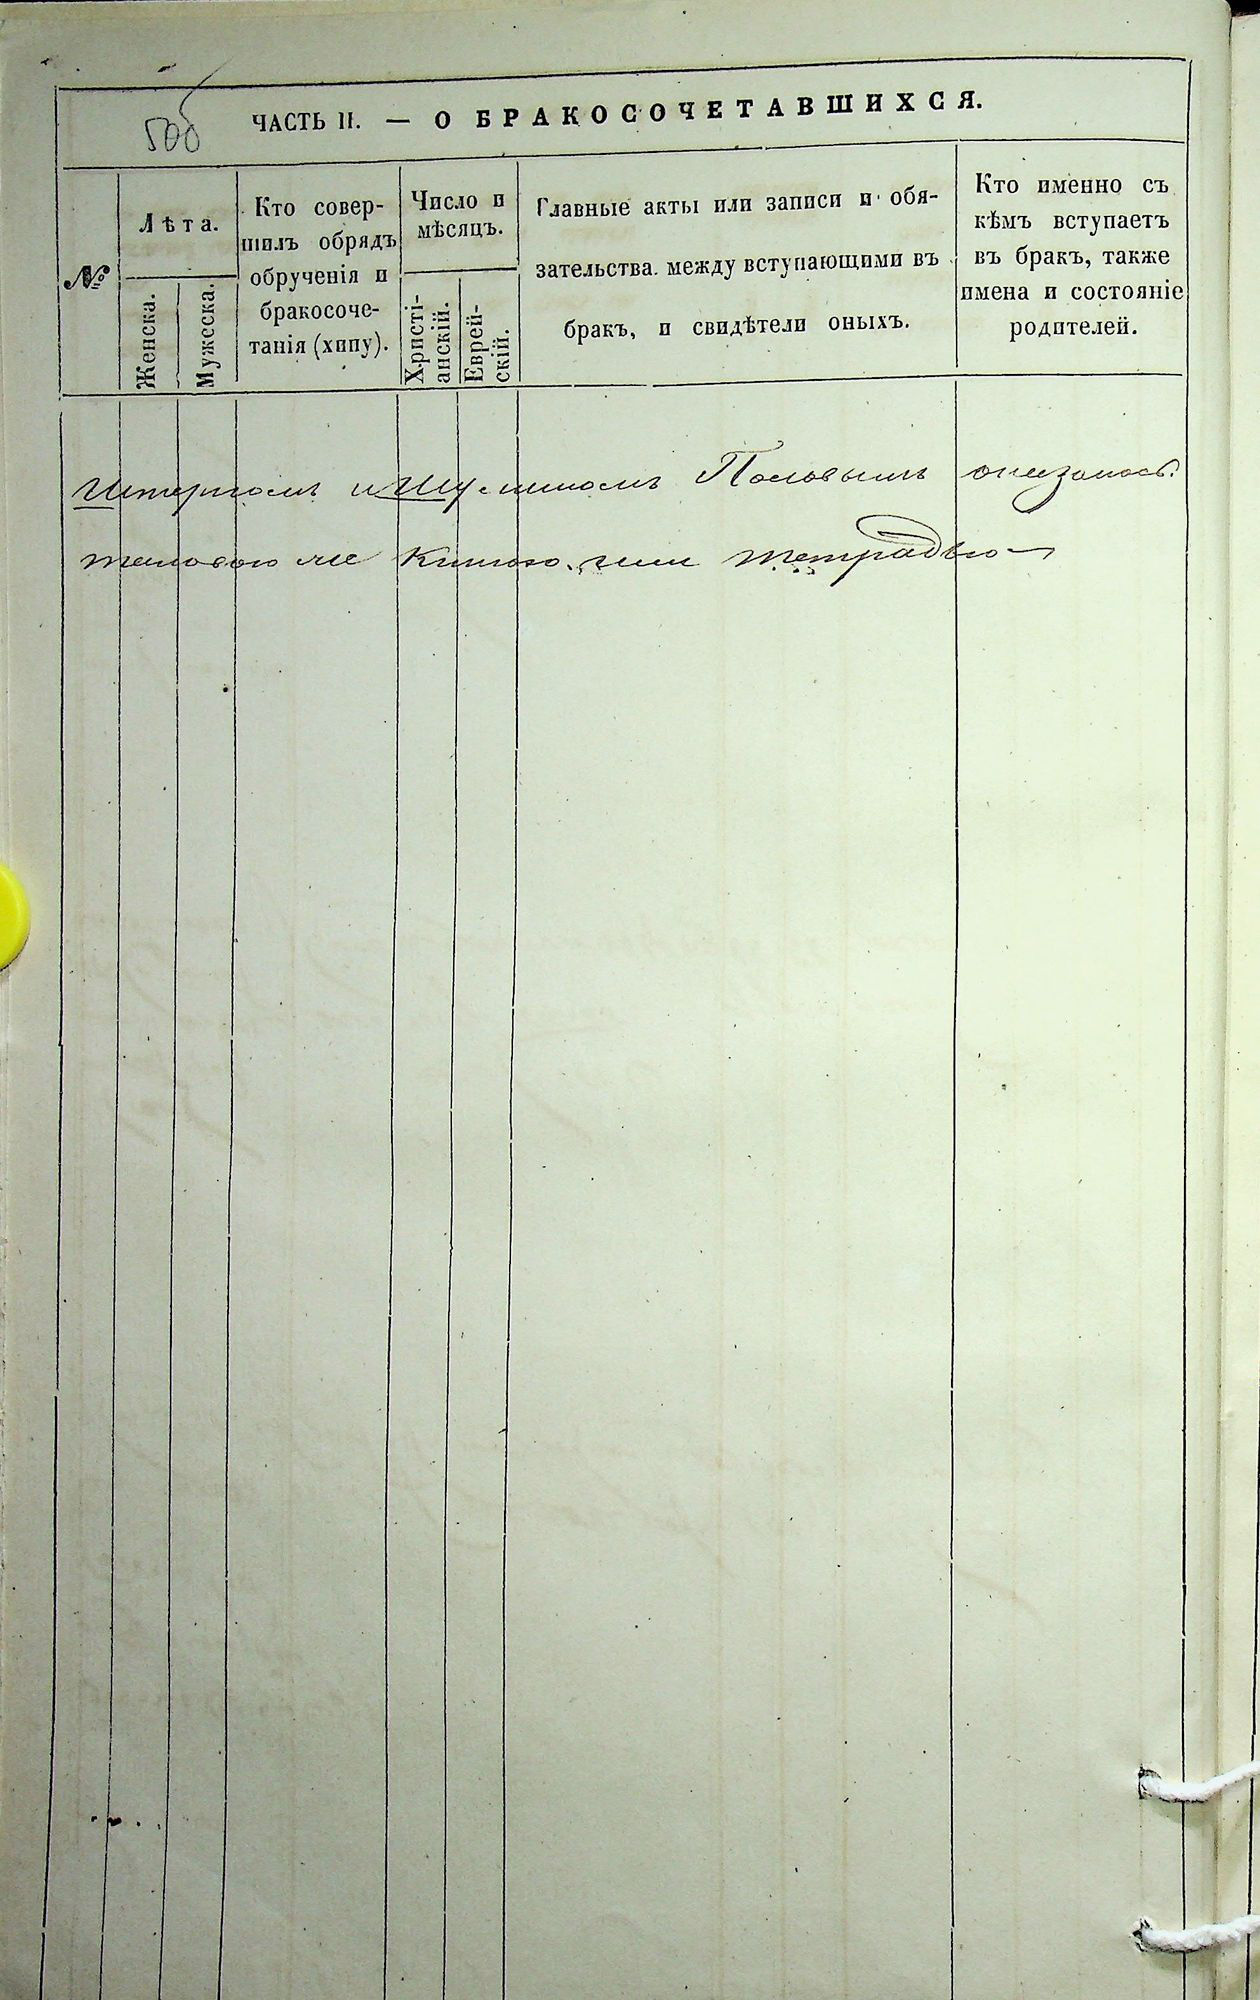 500
ЧАСТЬ II. — О БРАКОСОЧЕТАВШИХСЯ.
№
Лѣта.
Женска.
Мужеска.
Кто совер-
шилъ обрядъ
обрученія и
бракосоче-
танія (хипу).
Число и
мѣсяцъ.
Христі-
анскій.
Еврей-
скій.
Главные акты или записи и обя-
зательства между вступающими въ
бракъ, и свидѣтели оныхъ.
Кто именно съ
кѣмъ вступаетъ
въ бракъ, также
имена и состояніе
родителей.
и оказалось
таковою же книгою или тетрадью